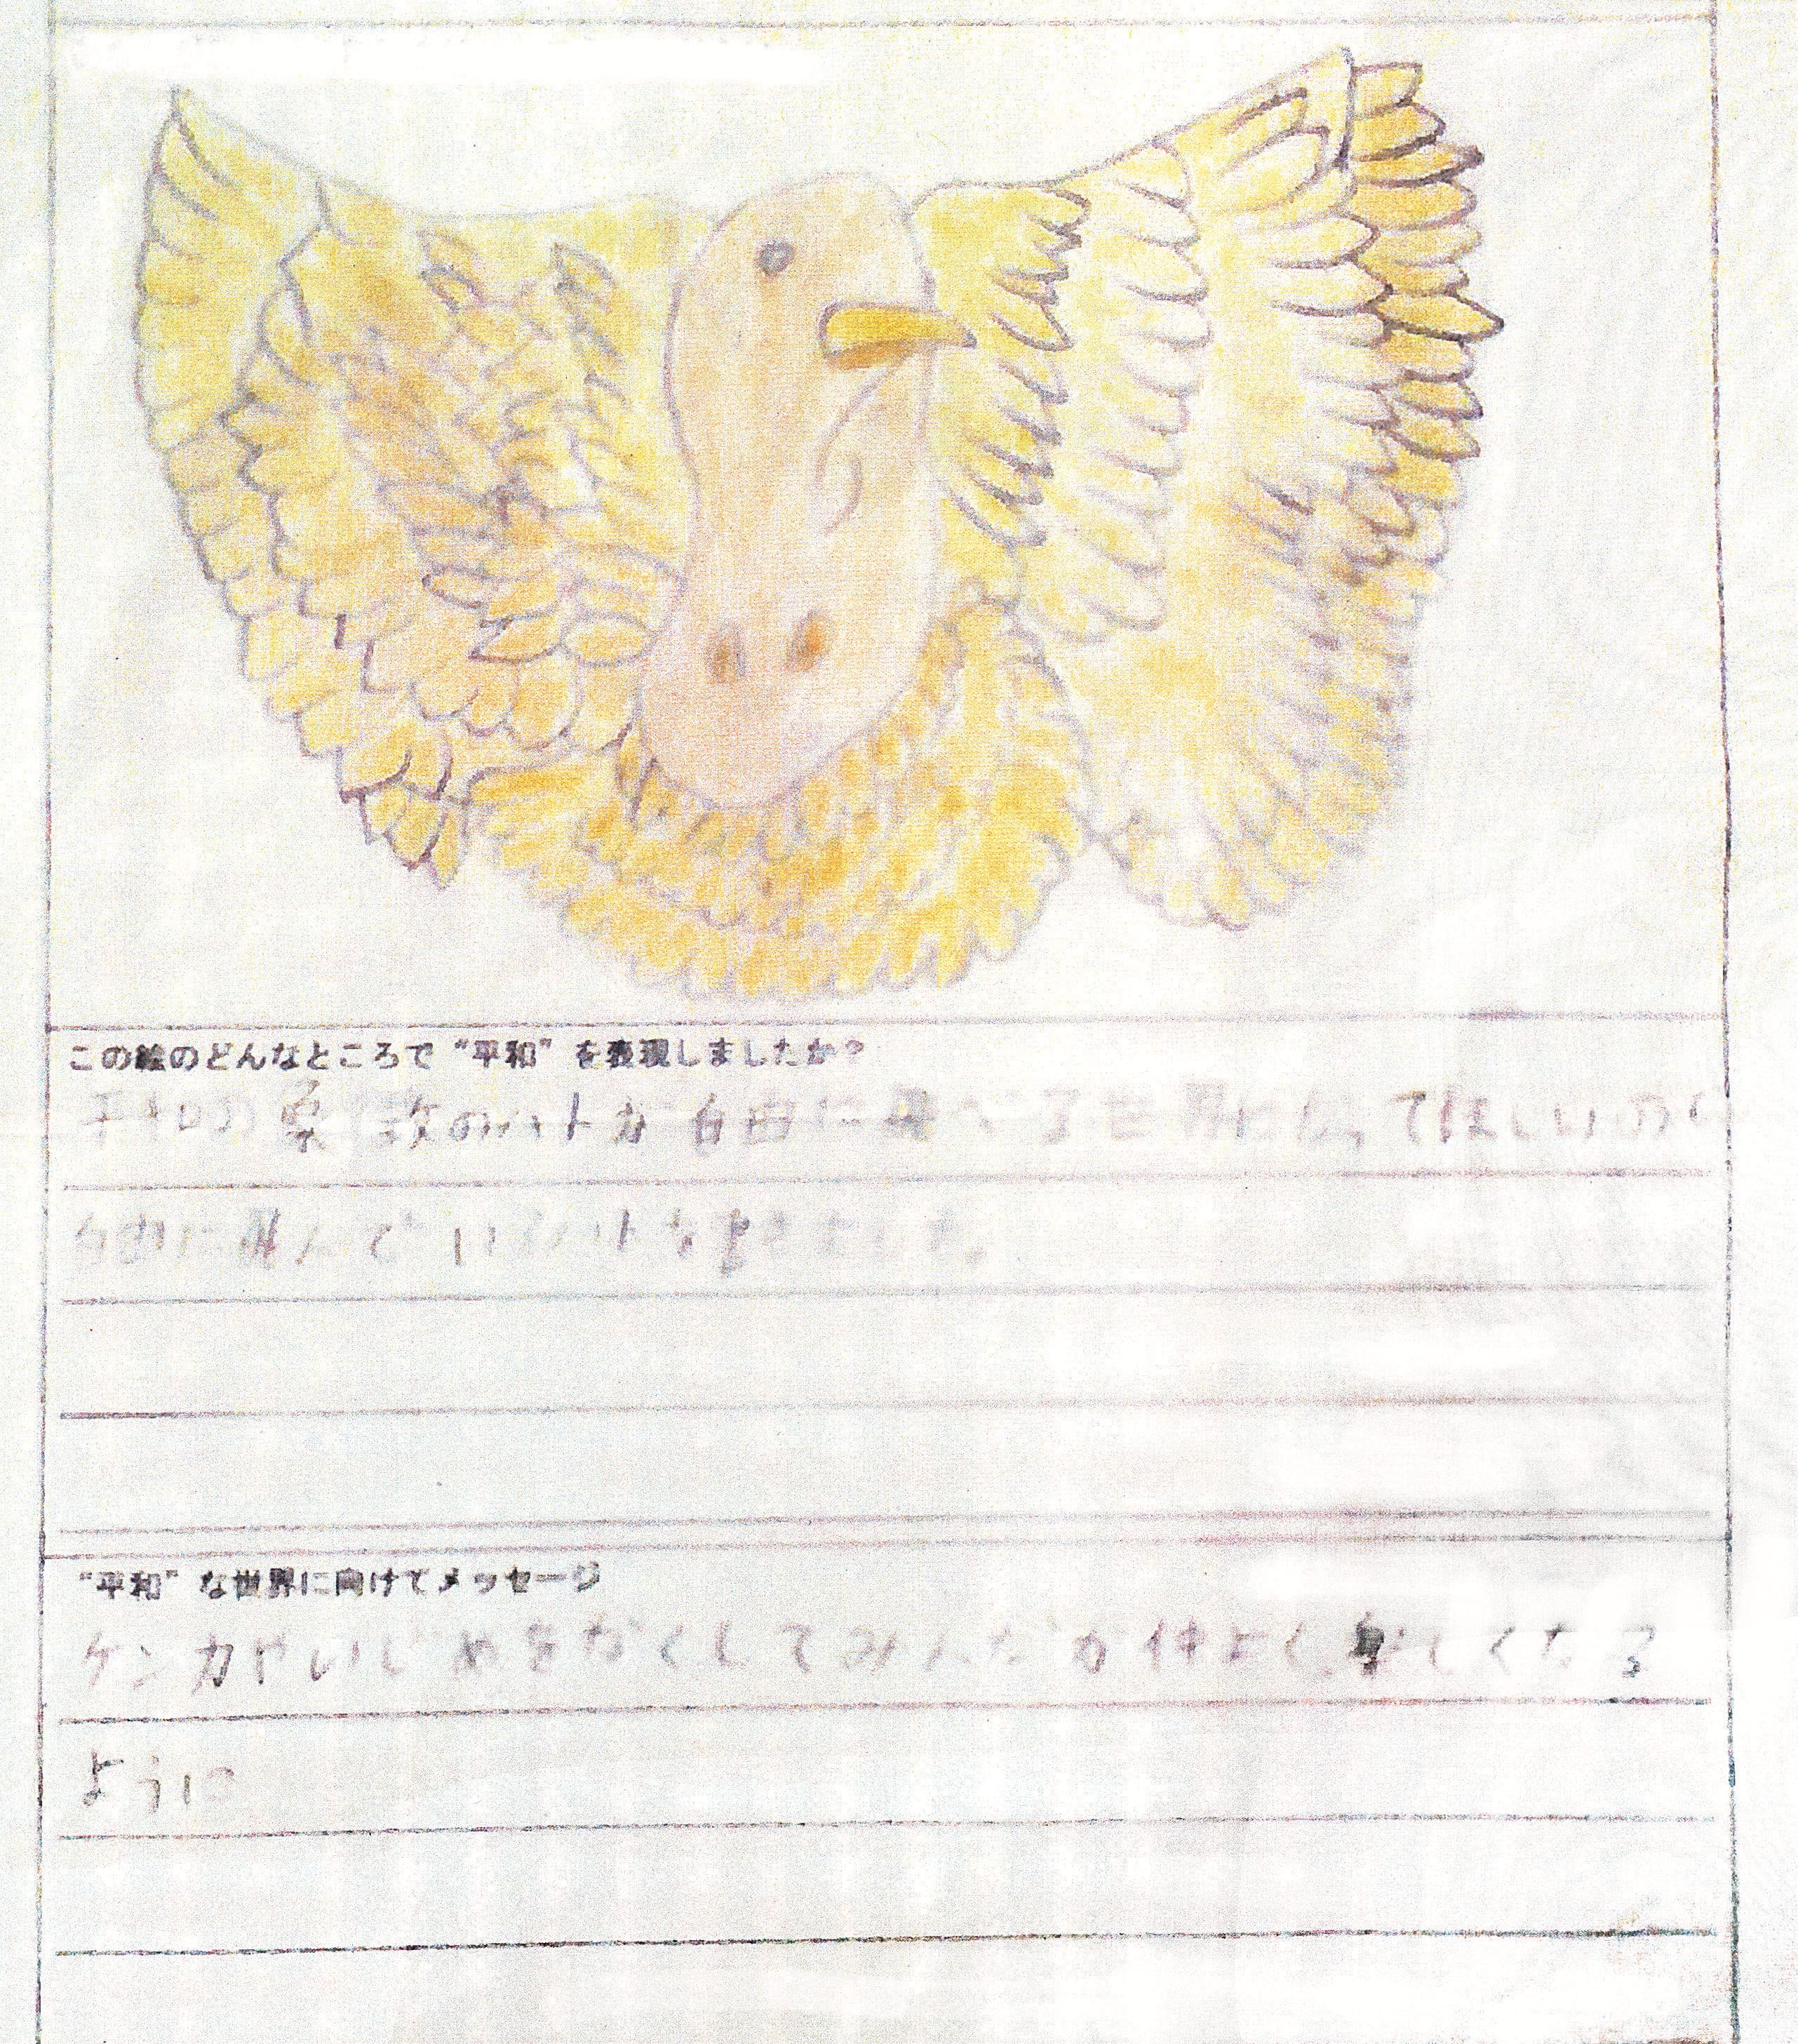 この絵のどんなところで“平和”を表現しましたか?
平和の象徴のハトが自由に飛べる世界になってほしいので
自由に飛んでいるハトをかきました。
“平和”な世界に向けてメッセージ
ケンカやいじめをなくしてみんなが仲よく楽しくなる
ように